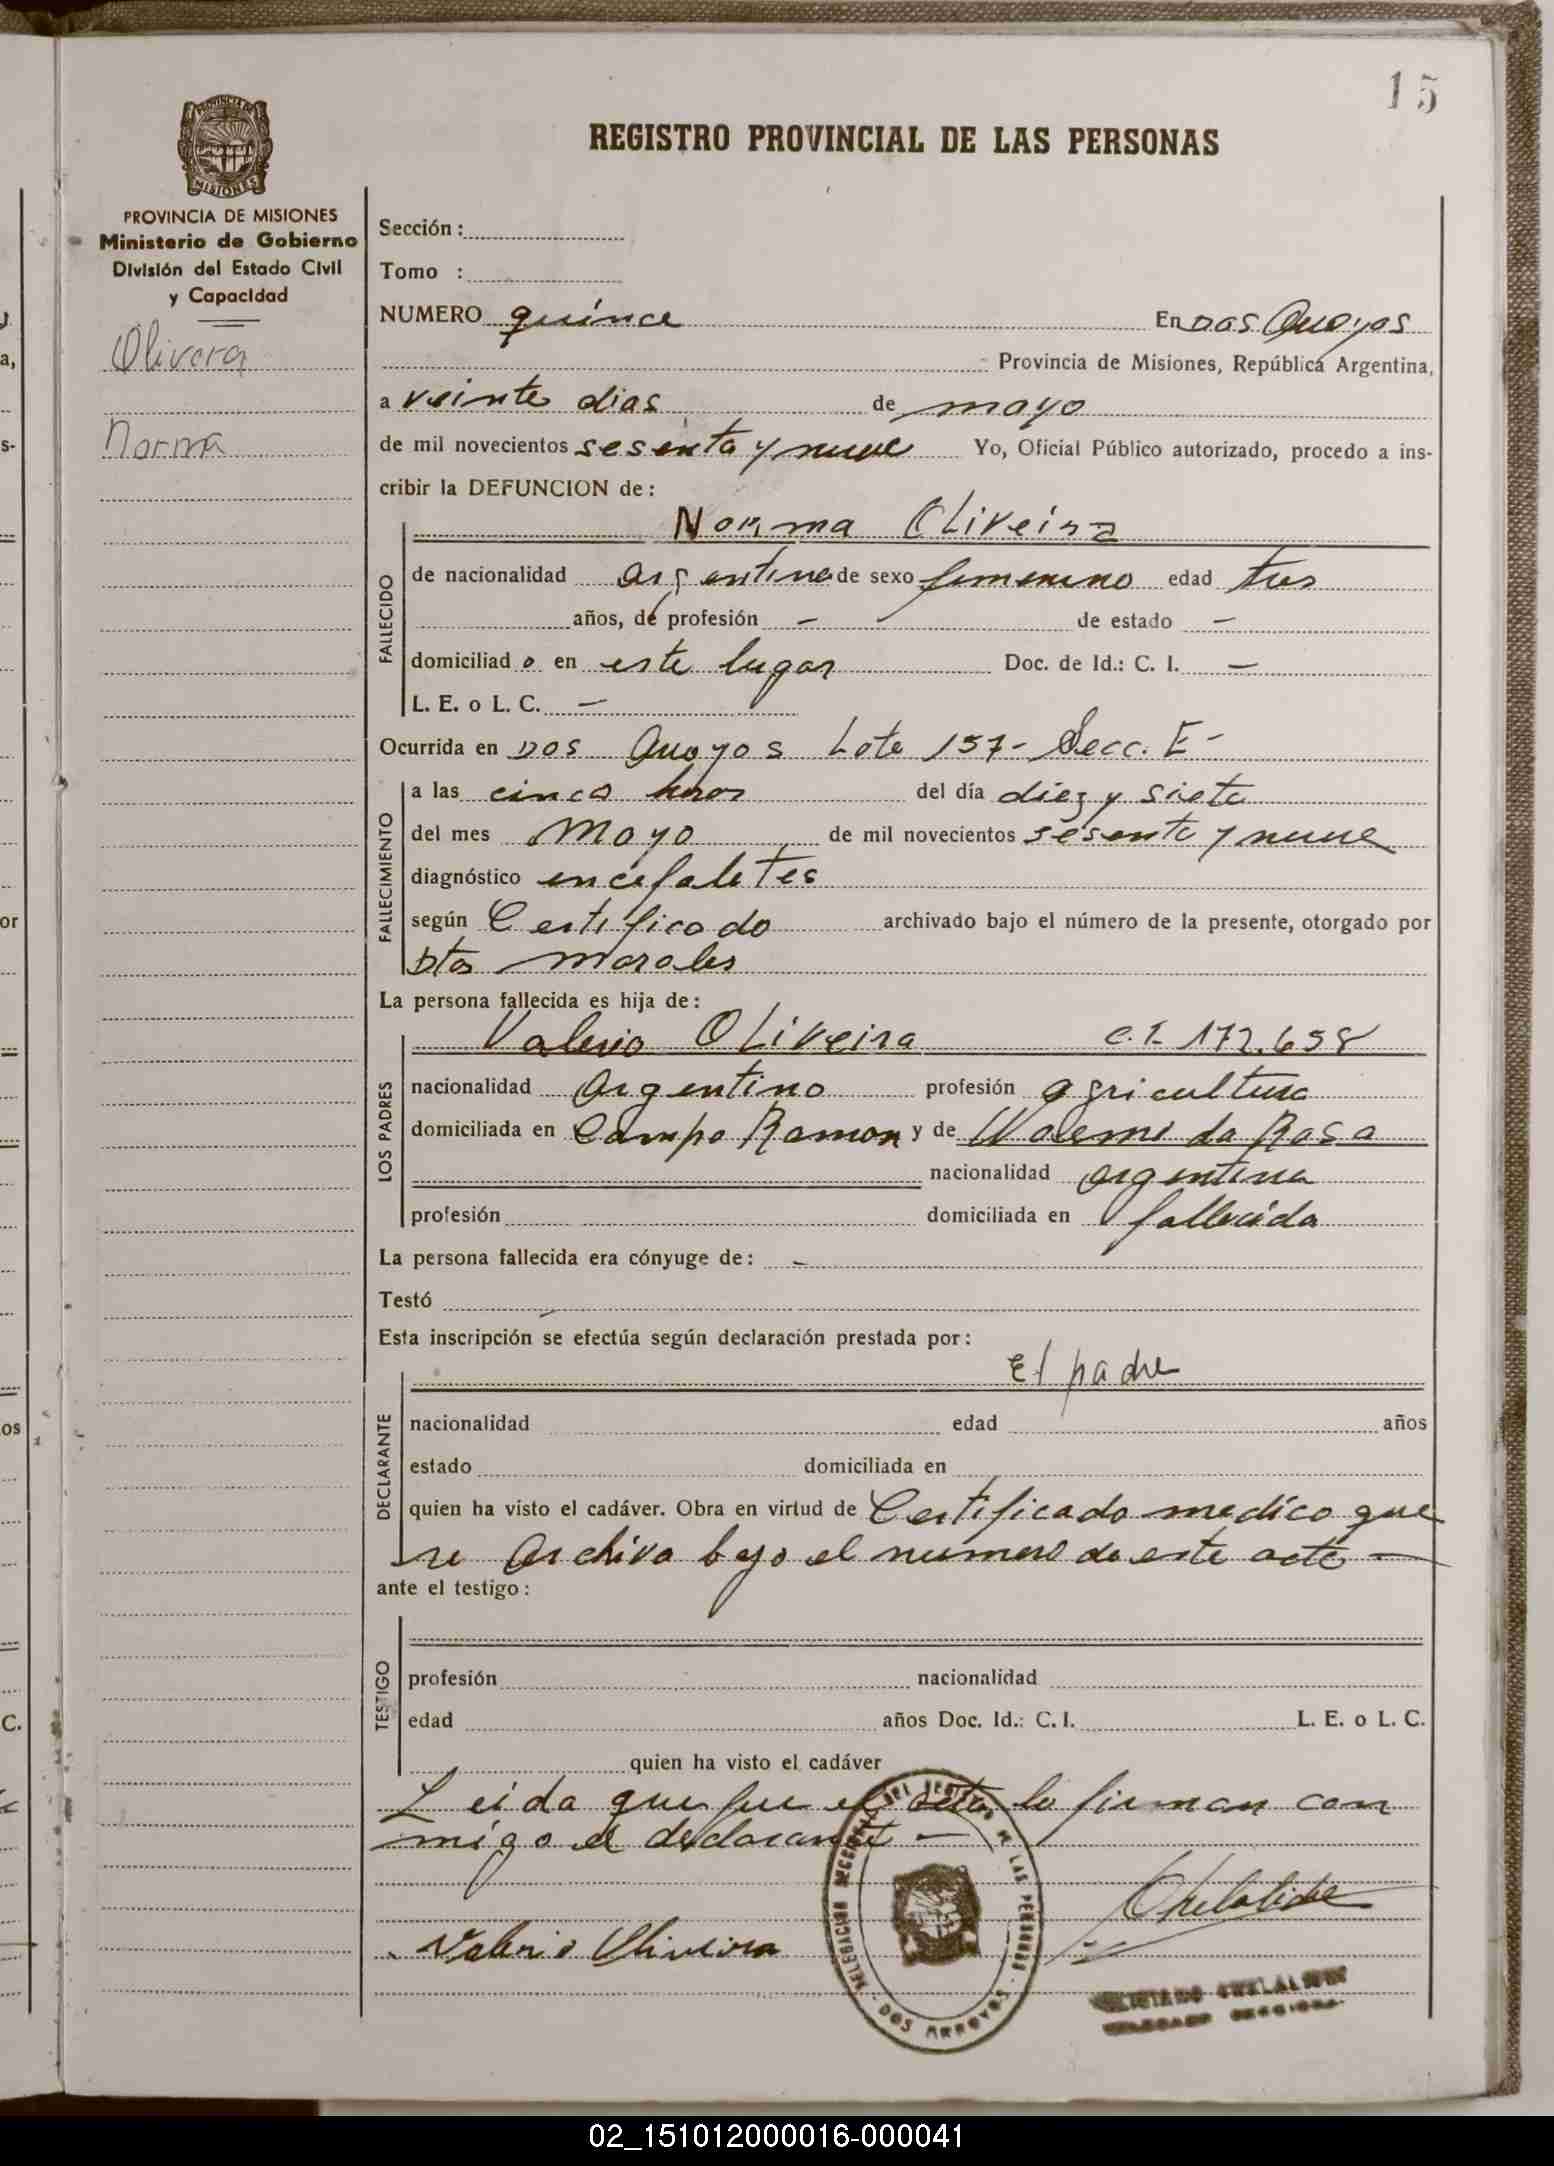 15
PROVINCIA DE MISIONES
Ministerio de Gobierno
División del Estado Civil
y Capacidad
Olivera
Norma
REGISTRO PROVINCIAL DE LAS PERSONAS
Sección :
Tomo :
NUMERO quince En Dos Arroyos
Provincia de Misiones, República Argentina,
a veinte dias de mayo
de mil novecientos sesenta y nueve Yo, Oficial Público autorizado, procedo a ins-
cribir la DEFUNCION de :
Norma Oliveira
FALLECIDO
de nacionalidad argentina de sexo femenino edad tres
años, de profesión — de estado —
domiciliad o en este lugar Doc. de Id.: C. I. —
L. E. o L. C. —
Ocurrida en Dos Arroyos Lote 157- Secc. E-
FALLECIMIENTO
a las cinco horas del día diez y siete
del mes Mayo de mil novecientos sesenta y nueve
diagnóstico encefaletes
según Certificado archivado bajo el número de la presente, otorgado por
Morales
La persona fallecida es hija de :
LOS PADRES
Valerio Oliveira C.I. 172.658
nacionalidad Argentino profesión agricultura
domiciliada en Campo Ramon y de Noemi da Rosa
nacionalidad argentina
profesión domiciliada en fallecida
La persona fallecida era cónyuge de : -
Testó
Esta inscripción se efectúa según declaración prestada por :
El padre
DECLARANTE
nacionalidad edad años
estado domiciliada en
quien ha visto el cadáver. Obra en virtud de Certificado medico que
se archiva bajo el numero de este acta —
ante el testigo :
TESTIGO
profesión nacionalidad
edad años Doc. Id.: C. I. L. E. o L. C.
quien ha visto el cadáver
Leida que fue el acta lo firman con
migo el declarante —
DELEGACION SECCIONAL DEL REGISTRO DE LAS PERSONAS - DOS ARROYOS -
Valerio Oliveira
02_151012000016-000041